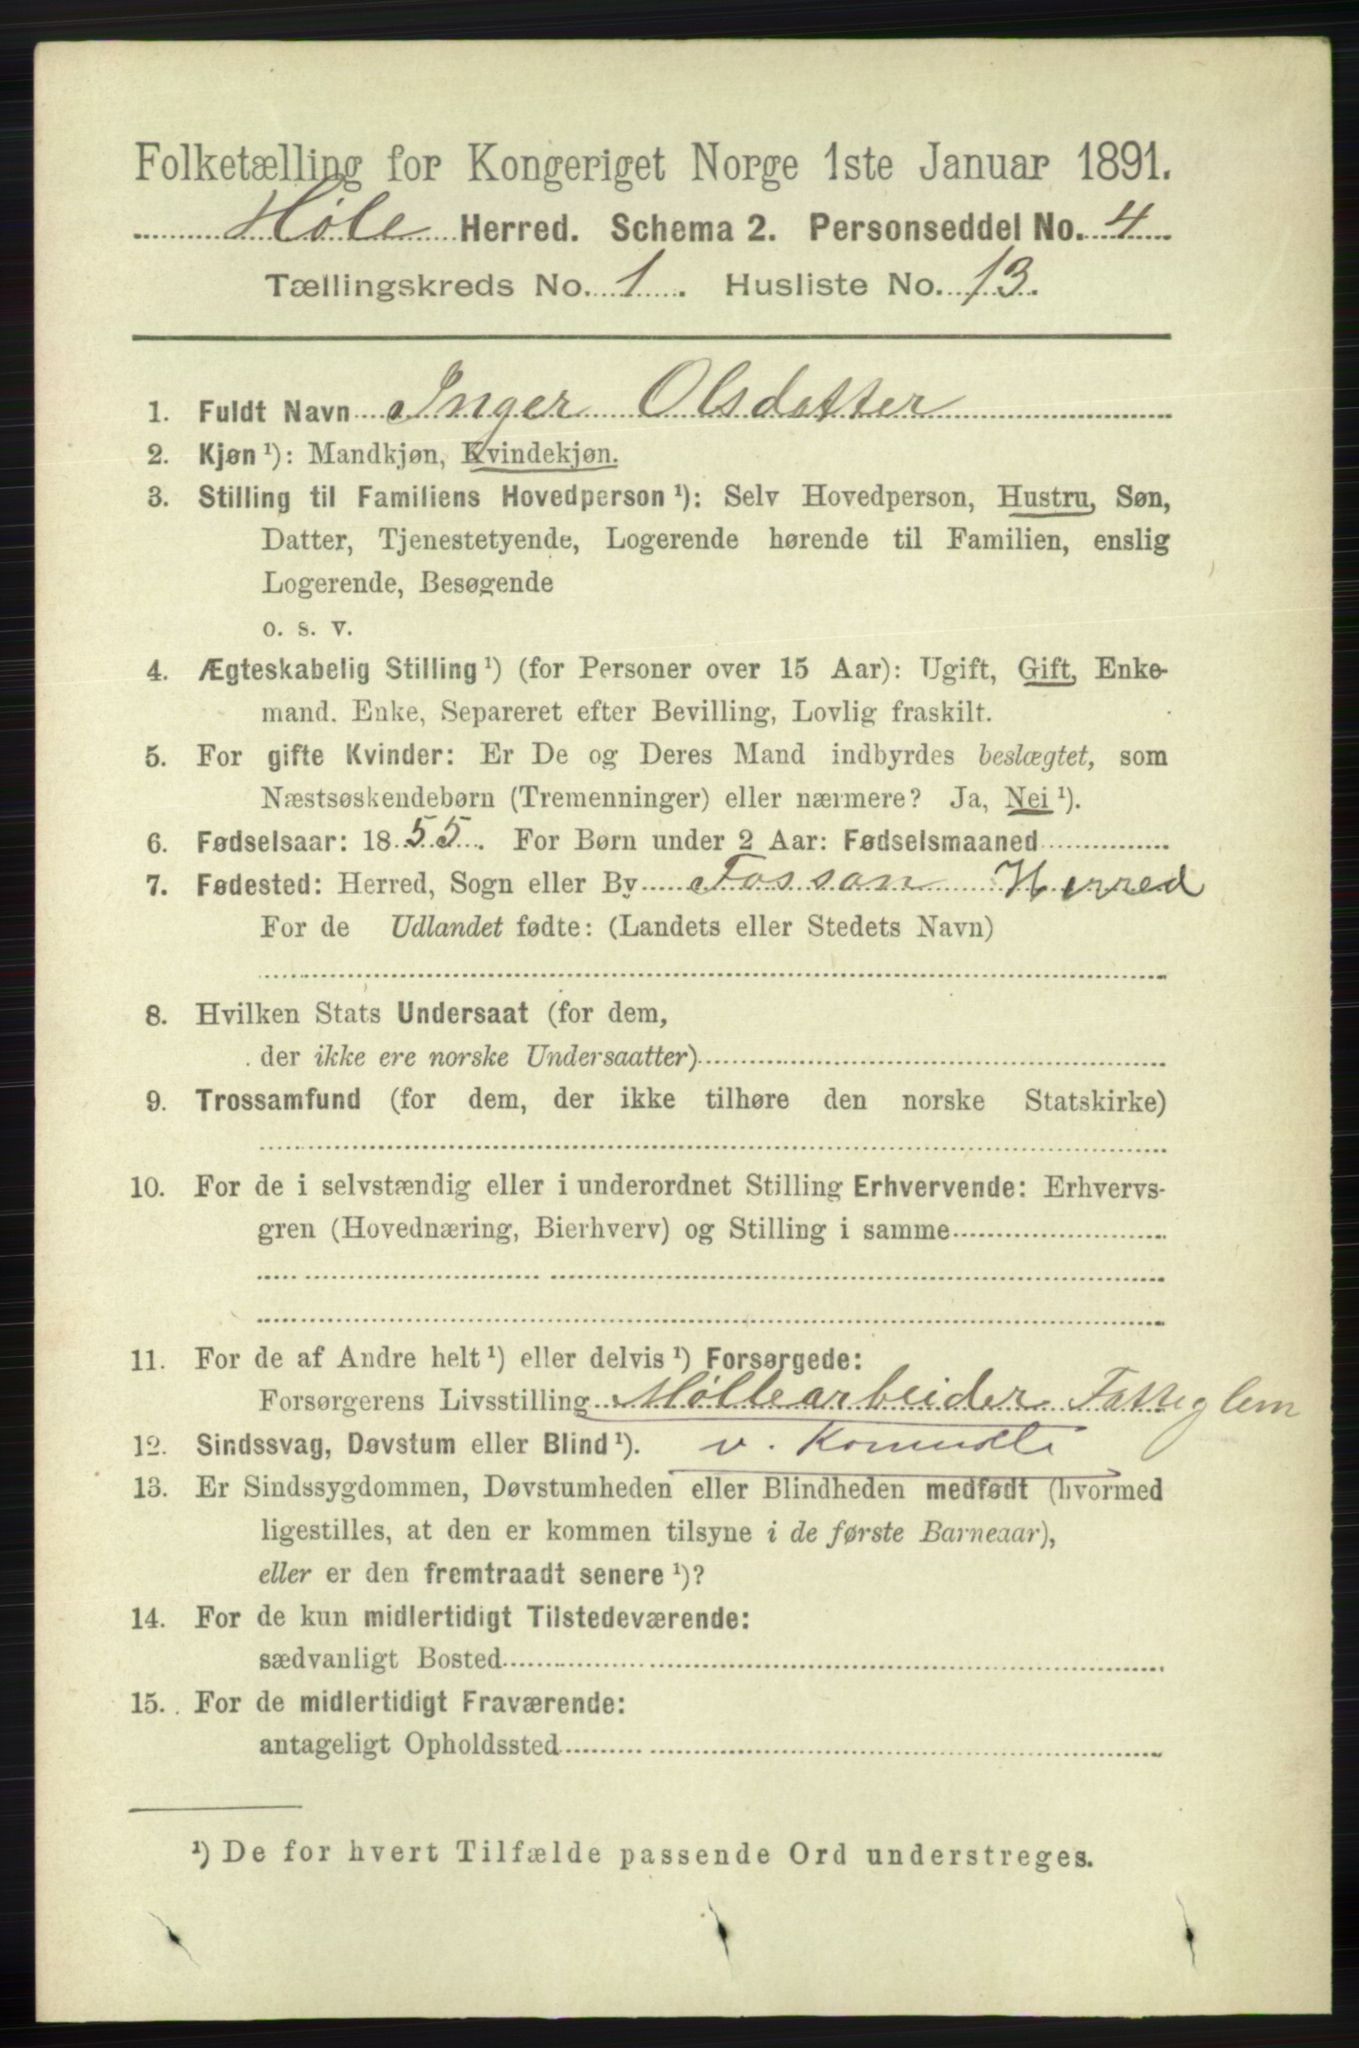 Folketælling for Kongeriget Norge 1ste Januar 1891.
Høle Herred. Schema 2. Personseddel No. 4
Tællingskreds No. 1. Husliste No. 13.
1. Fuldt Navn Inger Olsdatter
2. Kjøn ¹): Mandkjøn, Kvindekjøn.
3. Stilling til Familiens Hovedperson ¹): Selv Hovedperson, Hustru, Søn,
Datter, Tjenestetyende, Logerende hørende til Familien, enslig
Logerende, Besøgende
o. s. v.
4. Ægteskabelig Stilling ¹) (for Personer over 15 Aar): Ugift, Gift, Enke-
mand. Enke, Separeret efter Bevilling, Lovlig fraskilt.
5. For gifte Kvinder: Er De og Deres Mand indbyrdes beslægtet, som
Næstsøskendebørn (Tremenninger) eller nærmere? Ja, Nei ¹).
6. Fødselsaar: 1855. For Børn under 2 Aar: Fødselsmaaned
7. Fødested: Herred, Sogn eller By Fossan Herred
For de Udlandet fødte: (Landets eller Stedets Navn)
8. Hvilken Stats Undersaat (for dem,
der ikke ere norske Undersaatter)
9. Trossamfund (for dem, der ikke tilhøre den norske Statskirke)
10. For de i selvstændig eller i underordnet Stilling Erhvervende: Erhvervs-
gren (Hovednæring, Bierhverv) og Stilling i samme
11. For de af Andre helt ¹) eller delvis ¹) Forsørgede:
Forsørgerens Livsstilling Møllearbeider Fatteglem
12. Sindssvag, Døvstum eller Blind ¹). v.
13. Er Sindssygdommen, Døvstumheden eller Blindheden medfødt (hvormed
ligestilles, at den er kommen tilsyne i de første Barneaar),
eller er den fremtraadt senere ¹)?
14. For de kun midlertidigt Tilstedeværende:
sædvanligt Bosted
15. For de midlertidigt Fraværende:
antageligt Opholdssted
¹) De for hvert Tilfælde passende Ord understreges.